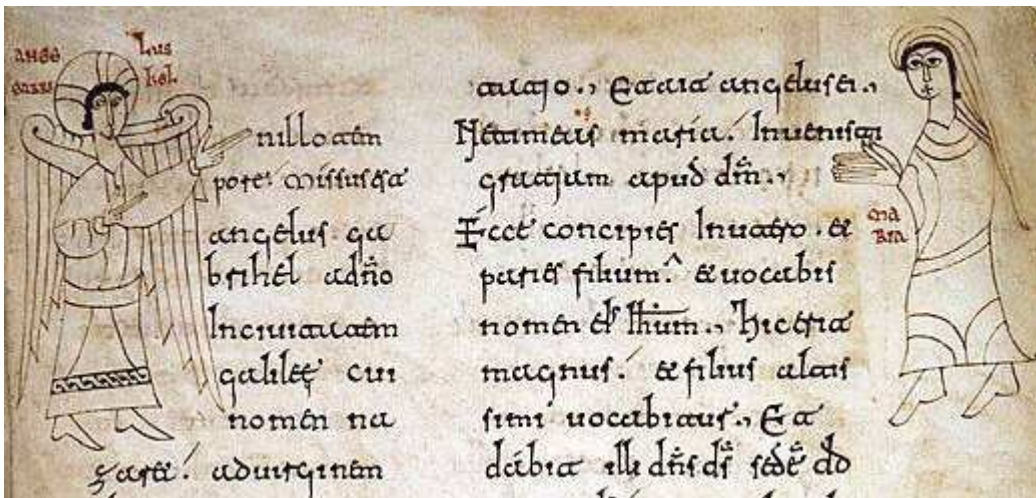 ange lus
gabri hel
nillo tem
pore. missus est
angelus ga
brihel a dn̄o
Inciuitatem
galileę cui
nomen na
zaret. aduirginem
tatio., Et ait angelus ei.,
Ne timeas maria. Inuenisti
gratiam apud dm̄.,
Ecce concipies Inutero. et
paries filium. et uocabis
nomen eƚ ihm̄., hic erit
magnus. et filius altis
simi uocabitur., Et
dabit illi dn̄s ds̄ sedē
ma
ria